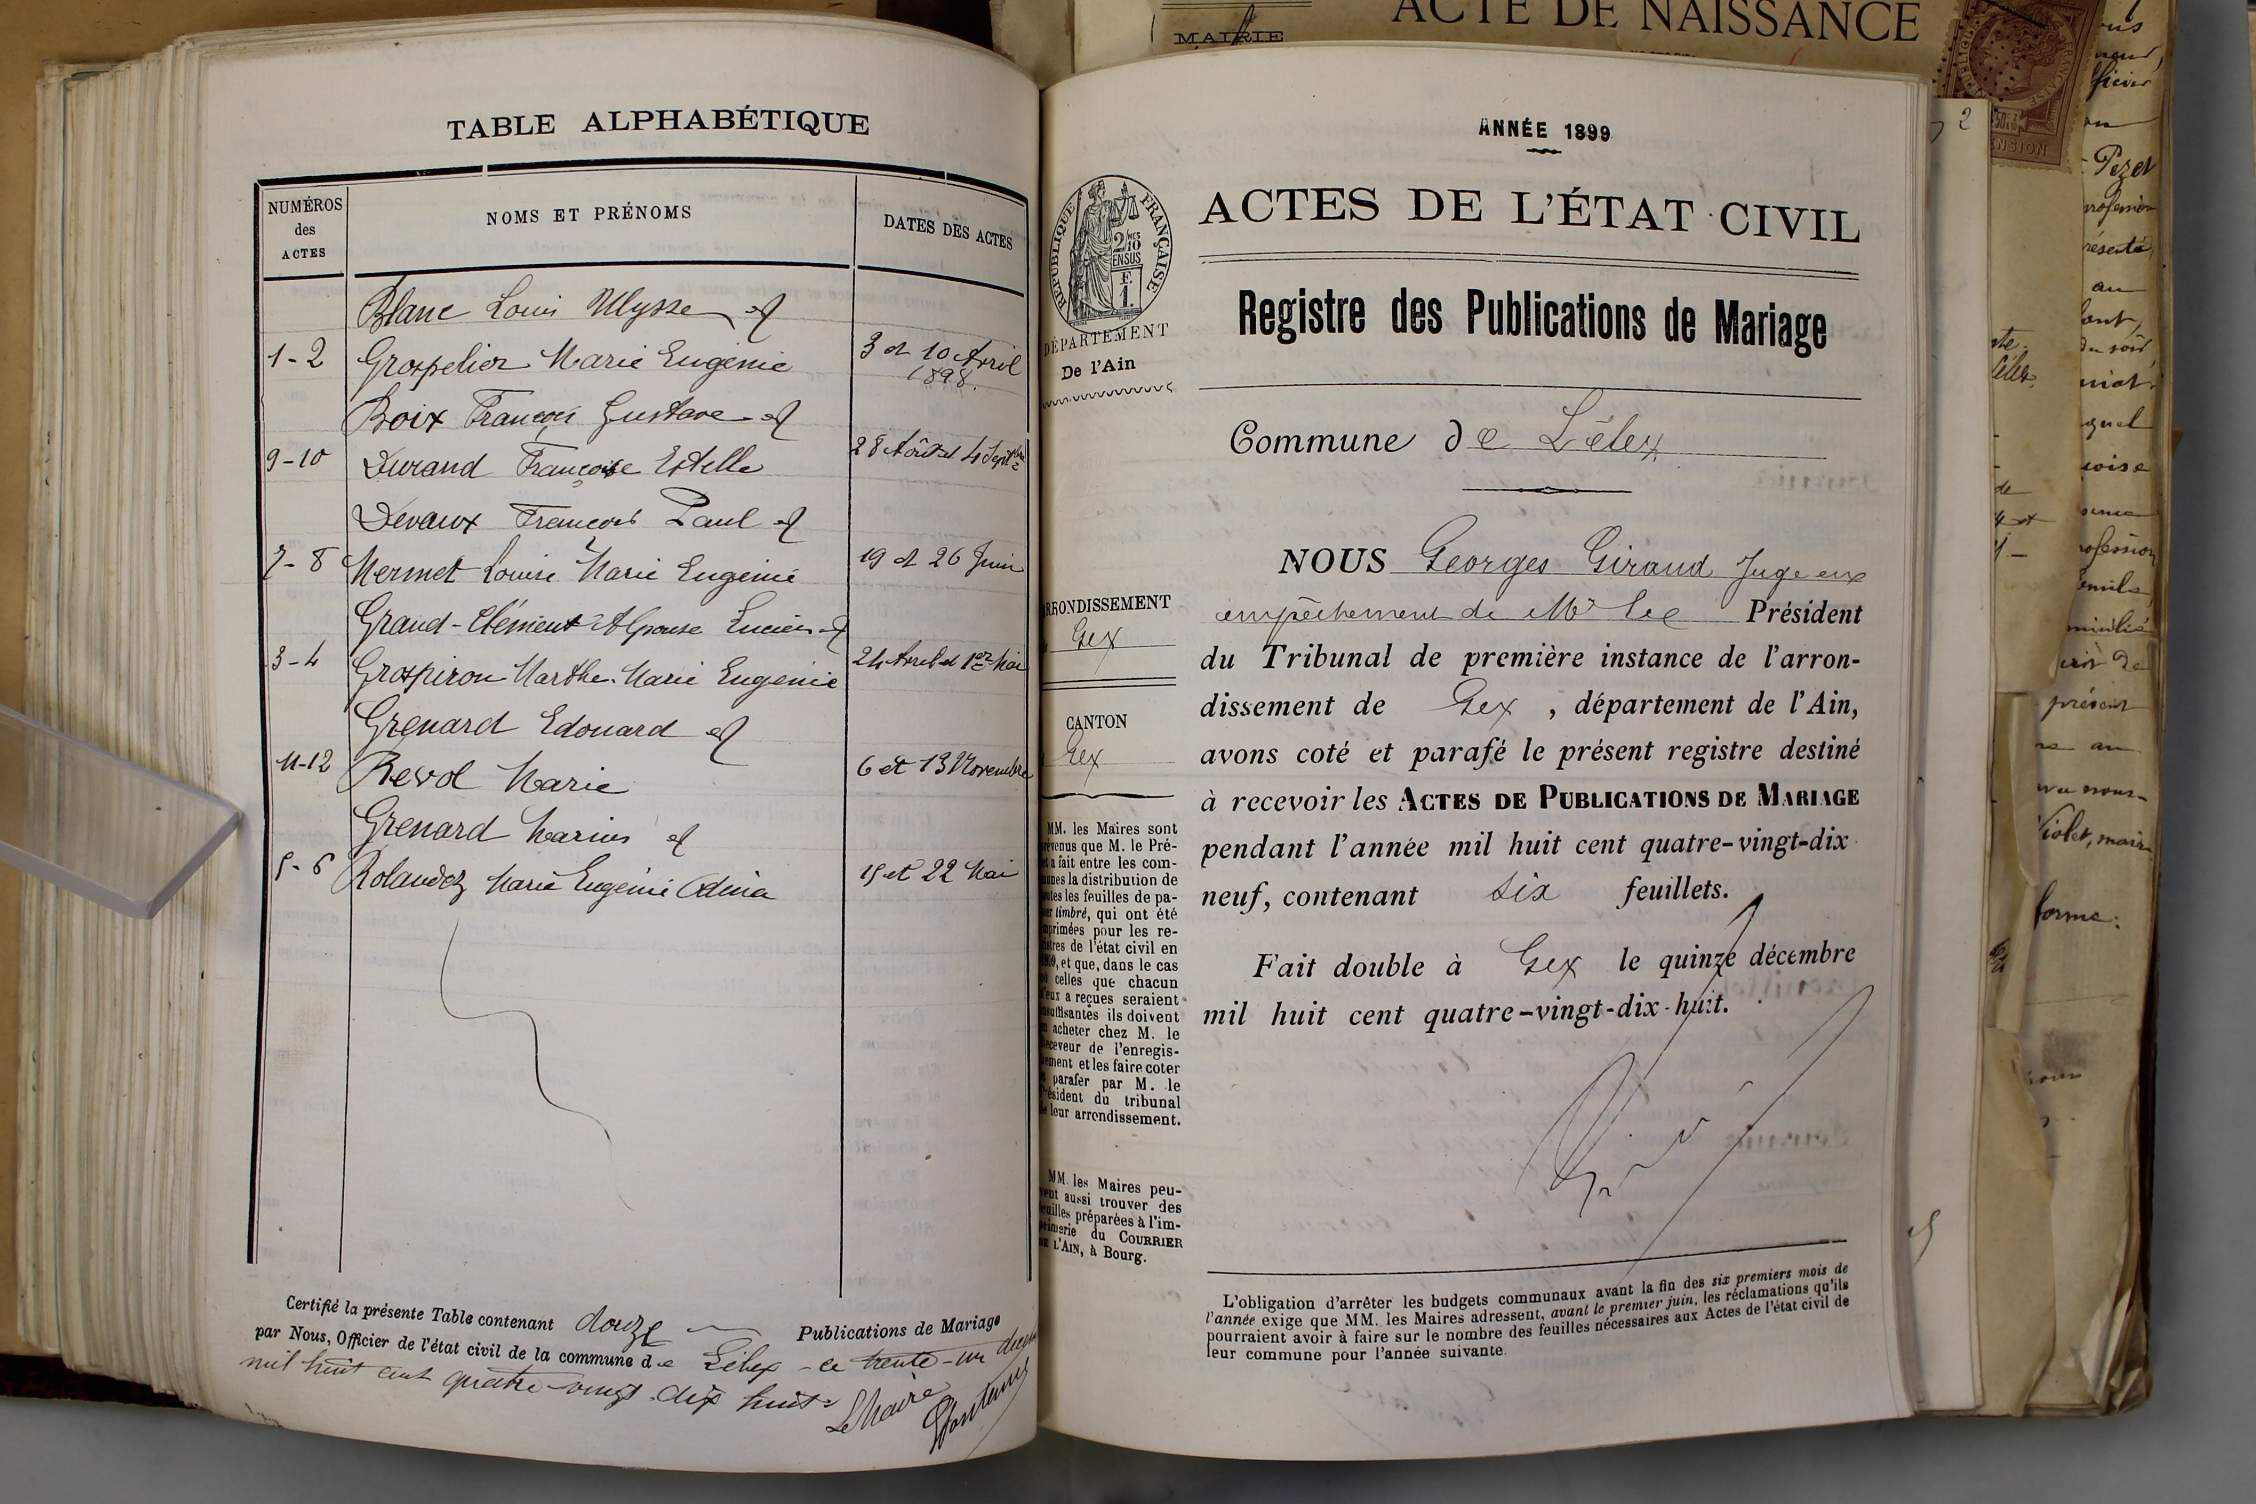 TABLE ALPHABÉTIQUE
NUMÉROS des ACTES
NOMS ET PRÉNOMS
DATES DES ACTES
Blanc Louis Ulysse et
1-2 Grospelier Marie Eugénie 3 et 10 Avril 1898.
Boix François Gustave et
9-10 Durand Françoise Estelle 28 Août et 4 Septbre
Devaux François Paul et
7-8 Mermet Louise Marie Eugénie 19 et 26 Juin
Grand-Clément Alponse Lucien et
3-4 Grospiron Marthe Marie Eugénie 24 Avril et 1er Mai
Grenard Edouard et
11-12 Revol Marie 6 et 13 Novembre
Grenard Marius et
5-6 Rolandez Marie Eugénie Adina 15 et 22 Mai
Certifié la présente Table contenant douze Publications de Mariage
par Nous, Officier de l'état civil de la commune de Lélex - ce trente-un
mil huit cent quatre-vingt-dix huit
Le Maire
MAIRIE
ACTE DE NAISSANCE
ANNÉE 1899
RÉPUBLIQUE FRANÇAISE
2/10 EN SUS
F. 1.
DÉPARTEMENT
De l'Ain
ACTES DE L'ÉTAT CIVIL
Registre des Publications de Mariage
Commune de Lélex
NOUS Georges Giraud Juge en
empêchement de Mr le Président
du Tribunal de première instance de l'arron-
dissement de Gex, département de l'Ain,
avons coté et parafé le présent registre destiné
à recevoir les ACTES DE PUBLICATIONS DE MARIAGE
pendant l'année mil huit cent quatre-vingt-dix
neuf, contenant six feuillets.
Fait double à Gex le quinze décembre
mil huit cent quatre-vingt-dix-huit.
ARRONDISSEMENT
Gex
CANTON
Gex
MM. les Maires sont
prévenus que M. le Pré-
fet a fait entre les com-
munes la distribution de
toutes les feuilles de pa-
pier timbré, qui ont été
imprimées pour les re-
gistres de l'état civil en
et que, dans le cas
où celles que chacun
d'eux a reçues seraient
insuffisantes ils doivent
en acheter chez M. le
Receveur de l'enregis-
trement et les faire coter
et parafer par M. le
Président du tribunal
de leur arrondissement.
MM. les Maires peu-
vent aussi trouver des
feuilles préparées à l'im-
primerie du COURRIER
DE L'AIN, à Bourg.
L'obligation d'arrêter les budgets communaux avant la fin des six premiers mois de
l'année exige que MM. les Maires adressent, avant le premier juin, les réclamations qu'ils
pourraient avoir à faire sur le nombre des feuilles nécessaires aux Actes de l'état civil de
leur commune pour l'année suivante.
2
Pezet
profession
au
présent
Violet, maire
forme: